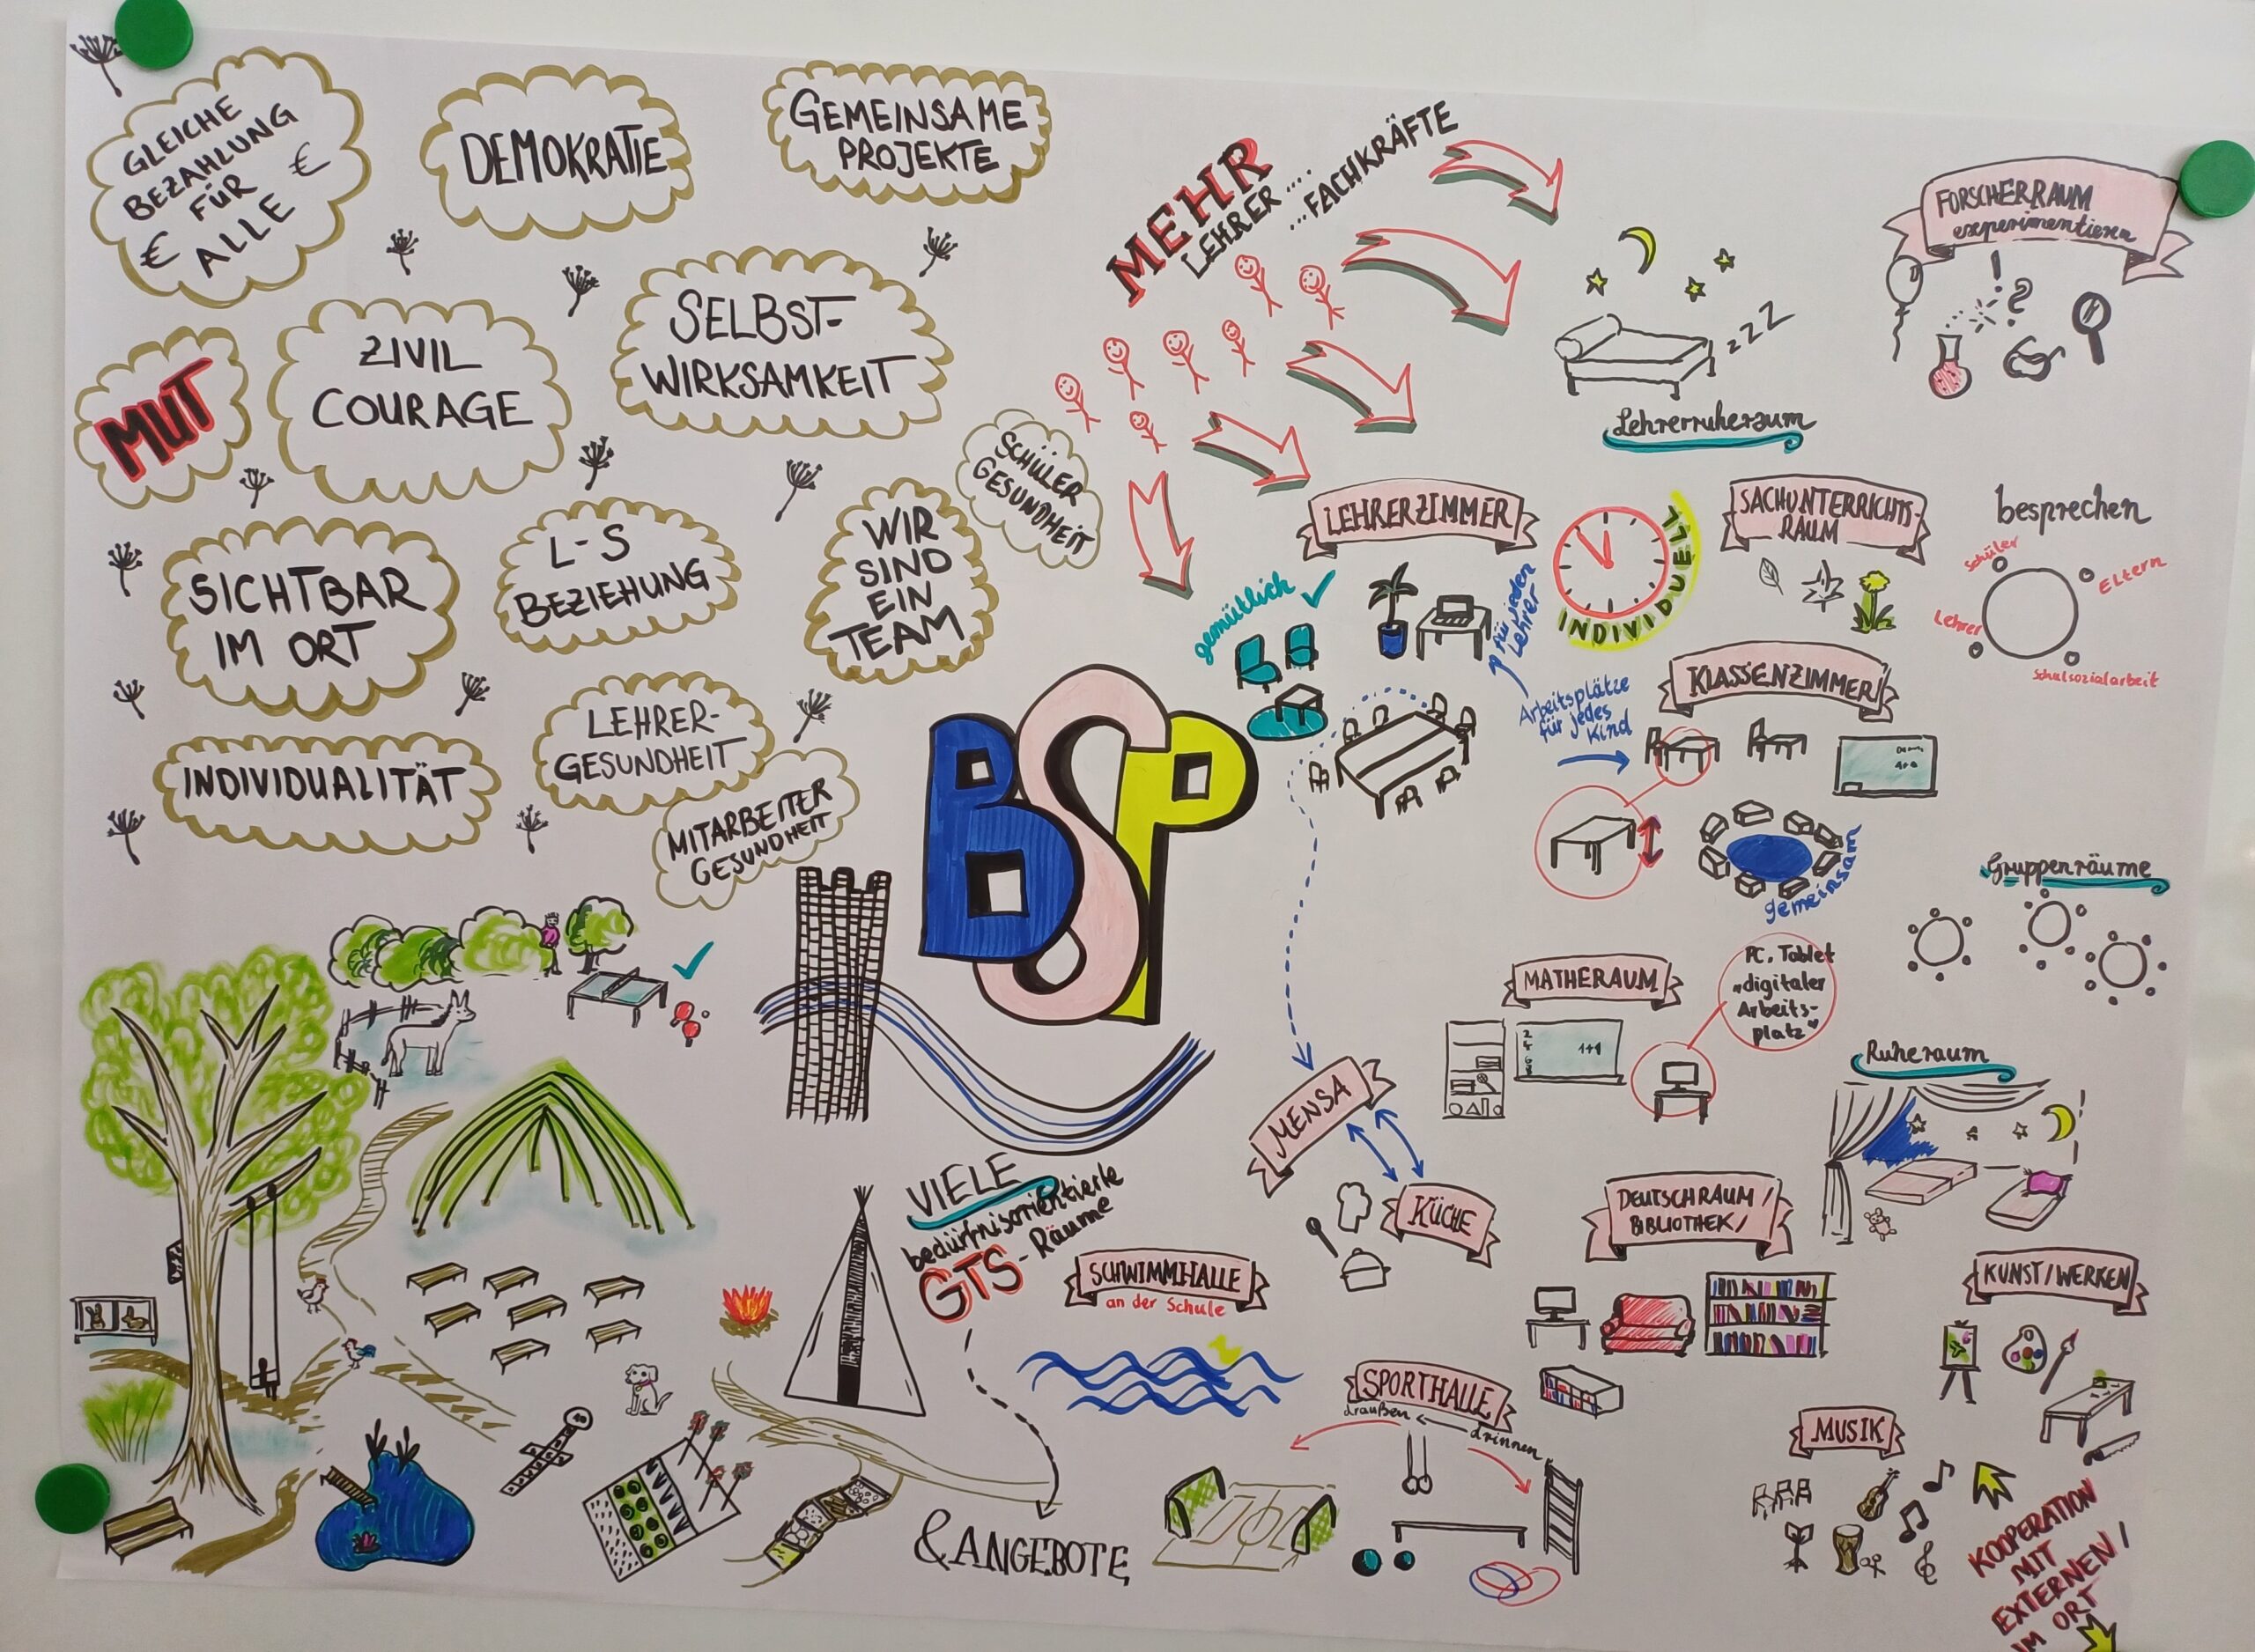 GLEICHE
BEZAHLUNG
FÜR
ALLE
€
€
DEMOKRATIE
GEMEINSAME
PROJEKTE
MUT
ZIVIL
COURAGE
SELBST-
WIRKSAMKEIT
SCHÜLER
GESUNDHEIT
SICHTBAR
IM ORT
L-S
BEZIEHUNG
WIR
SIND
EIN
TEAM
INDIVIDUALITÄT
LEHRER-
GESUNDHEIT
MITARBEITER
GESUNDHEIT
BSP
MEHR
LEHRER ....
...FACHKRÄFTE
zzZ
Lehrerruheraum
FORSCHERRAUM
experimentieren
! ?
LEHRERZIMMER
gemütlich
für jeden
Lehrer
INDIVIDUELL
SACHUNTERRICHTS-
RAUM
besprechen
Schüler
Eltern
Lehrer
Schulsozialarbeit
KLASSENZIMMER
Arbeitsplätze
für jedes
Kind
gemeinsam
Gruppenräume
MATHERAUM
PC, Tablet
"digitaler
Arbeits-
platz"
1+1
Ruheraum
MENSA
KÜCHE
DEUTSCHRAUM /
BIBLIOTHEK /
KUNST/WERKEN
VIELE
bedürfnisorientierte
GTS-Räume
& ANGEBOTE
SCHWIMMHALLE
an der Schule
SPORTHALLE
draußen
drinnen
MUSIK
KOOPERATION
MIT
EXTERNEN /
IM ORT